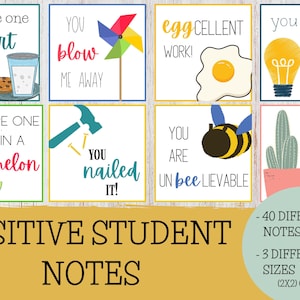 e one
rt
YOU
blow
ME AWAY
eggCELLENT
WORK!
you
E ONE
IN A
melon
YOU
nailed
IT!
YOU
ARE
UN bee LIEVABLE
SITIVE STUDENT
NOTES
- 40 DIFF
NOTES
- 3 DIFFER
SIZES
(2X2)